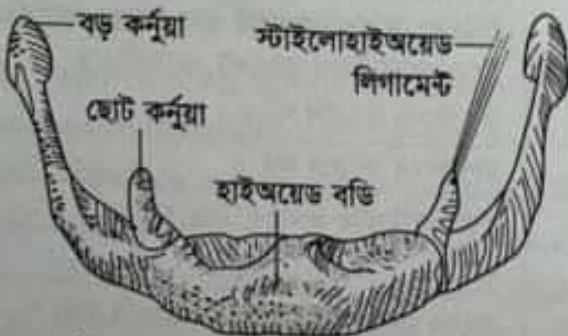 বড় কর্নুয়া
স্টাইলোহাইঅয়েড
লিগামেন্ট
ছোট কর্নুয়া
হাইঅয়েড বডি